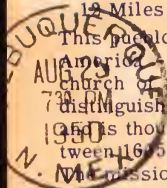 12 Miles
This pueblo
America
church of
distinguish
and is thou
tween
The mission
BUQUERQUE
AUG
730 PM
1950
N. M